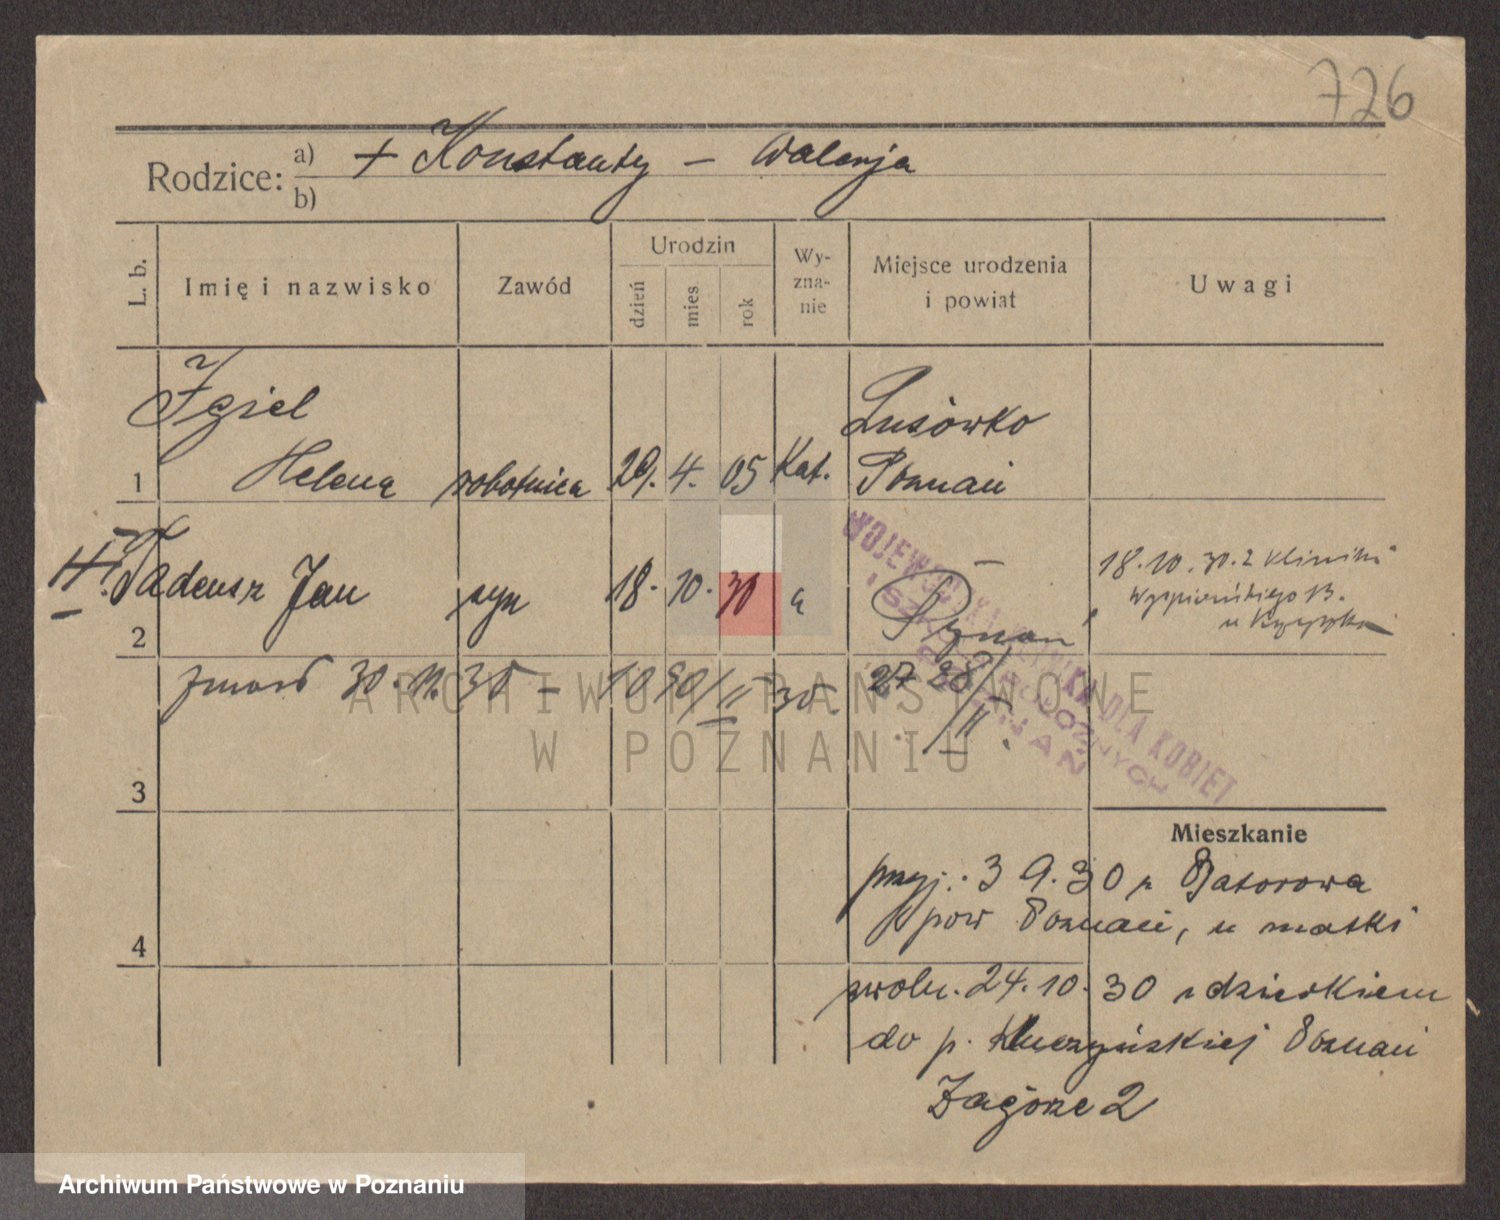 726
Rodzice: a) + Konstanty – Walerja
b)
L. b. Imię i nazwisko Zawód Urodzin dzień mies rok Wy-zna-nie Miejsce urodzenia i powiat Uwagi
Igiel Lusówko
1 Helena robotnica 29. 4. 05 Kat. Poznań
Tadeusz Jan syn 18. 10. 30 " Poznań
18.10.30. z kliniki
2
zmarł 30.11.30 – 1090/II 30. 27 28/II.
WOJEWÓDZKA KLINIKA DLA KOBIET
I SZKOŁA POŁOŻNYCH
POZNAŃ
3
Mieszkanie
przyj.: 3 9.30 z Batorowa
pow Poznań, u matki
4
zwoln. 24.10.30 z dzieckiem
do p. Kluczyńskiej Poznań
Zagórze 2
ARCHIWUM PAŃSTWOWE
W POZNANIU
Archiwum Państwowe w Poznaniu